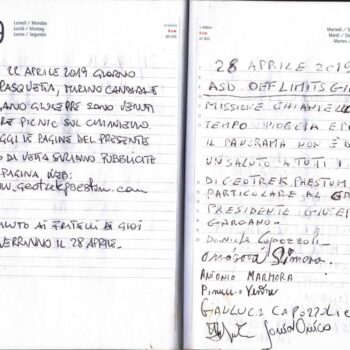 9
Lunedì / Monday
Lundi / Montag
Lunes / Segunda
22 APRILE 2019 GIORNO
PASQUETTA, MURINO CANDARATE
GIUSEPPE SONO VENUTI
PICNIC SUL CHIANIELLO.
LE PAGINE DEL PRESENTE
DI VETTA SARANNO PUBBLICATE
PAGINA WEB:
.geotrekpaestum.com
AI FRATELLI DI GIOI
VERRANNO IL 28 APRILE.
Martedì /
Mardi /
Martes /
28 APRILE 2019
ASD OFF LIMITS GIOI
MISSIONE CHIANIELLO
TEMPO PIOGGIA E
IL PANORAMA NON È
UN SALUTO A TUTTI I
DI GEOTREK PAESTUM
PARTICOLARE AL
PRESIDENTE GIUSEPPE
GARGANO.
Daniele Capozzoli
Simona
ANTONIO MARMORA
GIANLUCA CAPOZZOLI